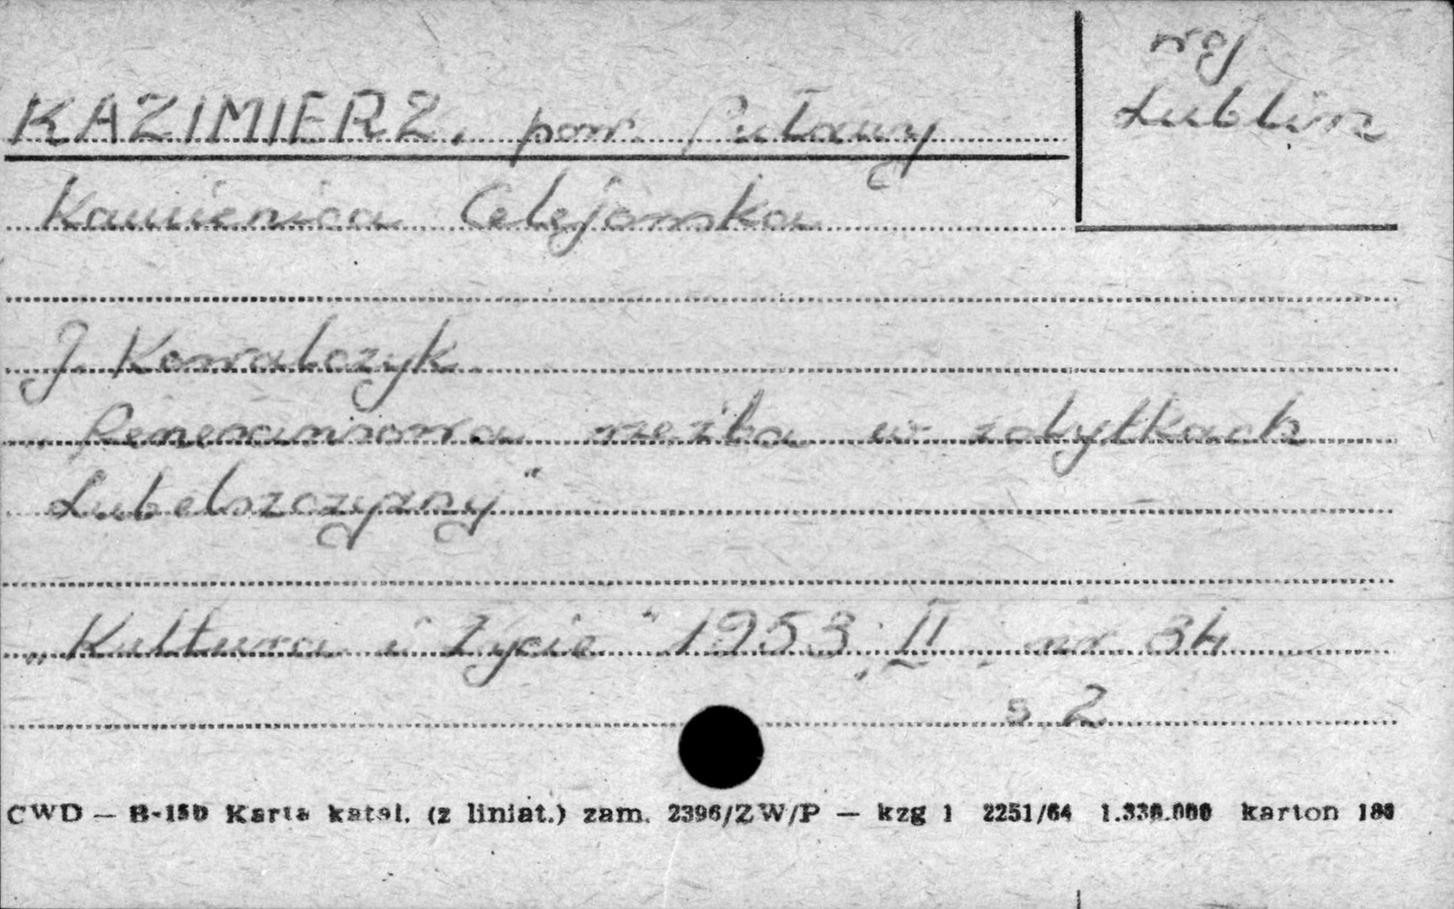 woj
Lublin
KAZIMIERZ, pow. Puławy
Kamienica Celejowska
J. Kowalczyk
„Renesansowa rzeźba w zabytkach
Lubelszczyzny"
„Kultura i Życie" 1953, II, nr 34
s 2
CWD — B-15b Karta katal. (z liniat.) zam. 2396/ZW/P — kzg 1 2251/64 1.330.000 karton 180